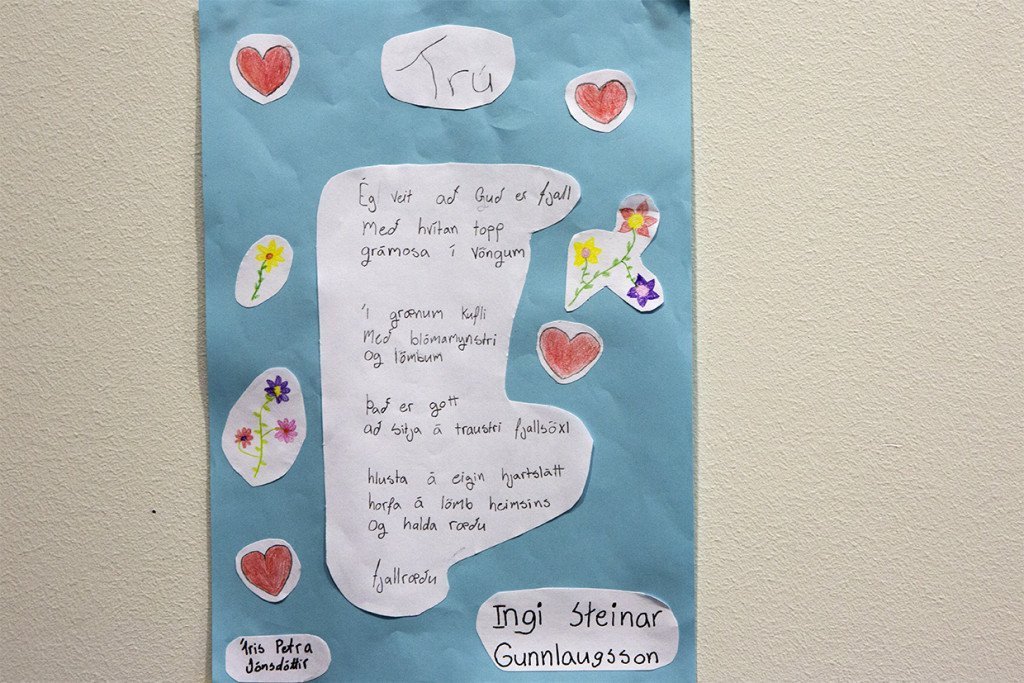 Trú
Ég veit að Guð er fjall
Með hvítan topp
grámosa í Vöngum
Í grænum kufli
Með blómamynstri
Og lömbum
Það er gott
að sitja á traustri fjallsöxl
hlusta á eigin hjartslátt
horfa á lömb heimsins
Og halda ræðu
fjallræðu
Ingi Steinar
Gunnlaugsson
Íris Petra
Jónsdóttir